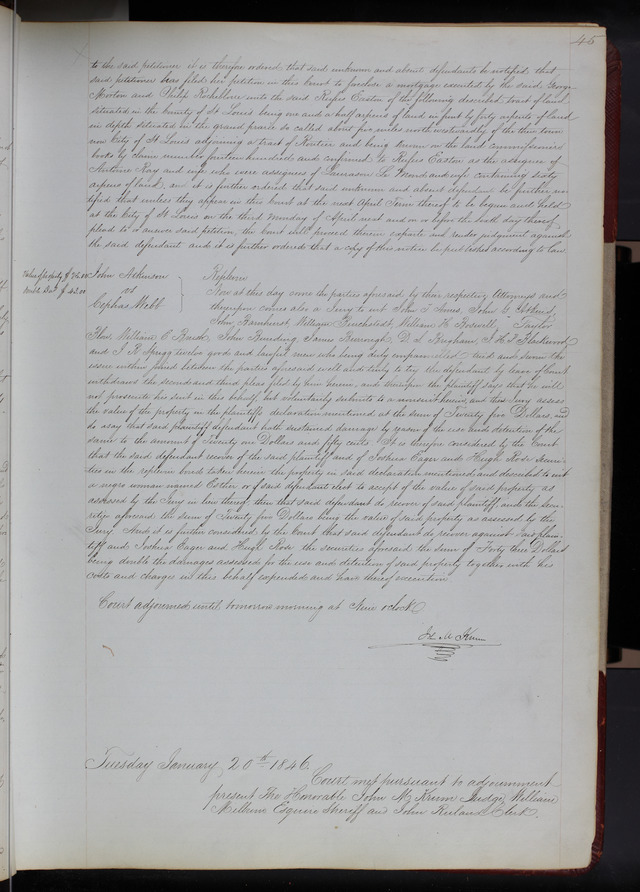 45
to the said petitioner it is therefore ordered that said unknown and absent defendants be notified, that
said petitioner has filed her petition in this Court to foreclose a mortgage executed by the said George
Morton and Philip Rochblave unto the said Rufus Easton of the following described tract of land
situated in the County of St Louis being one and a half arpens of land in front by forty arpents of land
in depth situated in the grand prairie so called about five miles north westwardly of the then town
now City of St Louis adjoining a tract of and being known on the land commissioners
books by claim number fourteen hundred and confirmed to Rufus Easton as the assignee of
Antoine Roy and wife who were assignees of and wife containing sixty
arpens of land, and it is further ordered that said unknown and absent defendants be further no
tified that unless they appear in this Court at the next April Term thereof to be begun and held
at the City of St Louis on the third Monday of April next and on or before the sixth day thereof
plead to or answer said petition, the Court will proceed therein exparte and render judgment against
the said defendant and it is further ordered that a copy of this notice be published according to law
Value of property $ 25.00
Double Dam. $ 43.00
John Atkinson
vs
Cephas Webb
Replevin
Now at this day come the parties aforesaid by their respective Attorneys and
thereupon comes also a Jury to wit John T Ames, John C
John Barnhurst, William William H Roswell, Taylor
William C Buck, John Bunding James Burrough D L Bingham, J H J Blackwood
and J R Sprigg twelve good and lawful men who being duly empannelled tried and sworn the
issue within joined between the parties aforesaid well and truly to try the defendant by leave of Court
withdraws the second and third pleas filed by him herein, and thereupon the plaintiff says that he will
not prosecute his suit in this behalf but voluntarily submits to a nonsuit herein, and the Jury assess
the value of the property in the plaintiffs declaration mentioned at the sum of Twenty five Dollars, and
do assay that said plaintiff defendant hath sustained damage by reason of the use and detention of the
same to the amount of Twenty one Dollars and fifty cents. It is therefore considered by the Court
that the said defendant recover of the said plaintiff and of Joshua Eager and Hugh Rose Securi
ties in the replevin bond taken herein the property in said declaration mentioned and described to wit
a negro woman named Esther or if said defendant elect to accept of the value of said property as
assessed by the Jury in lieu thereof, then that said defendant do recover of said plaintiff, and the secu
rities aforesaid the sum of Twenty five Dollars being the value of said property as assessed by the
Jury. And it is further considered by the Court that said defendant do recover against said plain
tiff and Joshua Eager and Hugh Rose the securities aforesaid the sum of Forty three Dollars
being double the damages assessed for the use and detention of said property together with his
costs and charges in this behalf expended and have thereof execution
Court adjourned until tomorrow morning at Nine oClock
Jno M Krum
Tuesday January 20th 1846.
Court met pursuant to adjournment
present The Honorable John M Krum Judge, William
Milburn Esquire Sheriff and John Ruland Clerk.